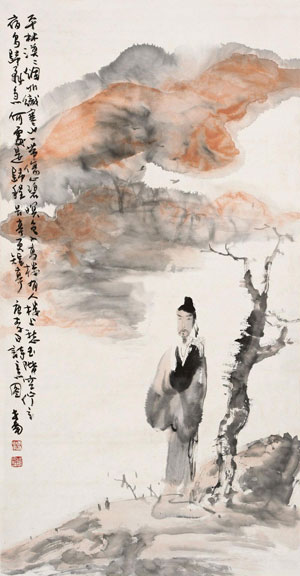 平林漠〻烟如織寒山一帶傷心碧暝色入高樓有人樓上愁玉階空佇立
宿鳥歸飛急何處是歸程長亭更短亭 李白詩意圖